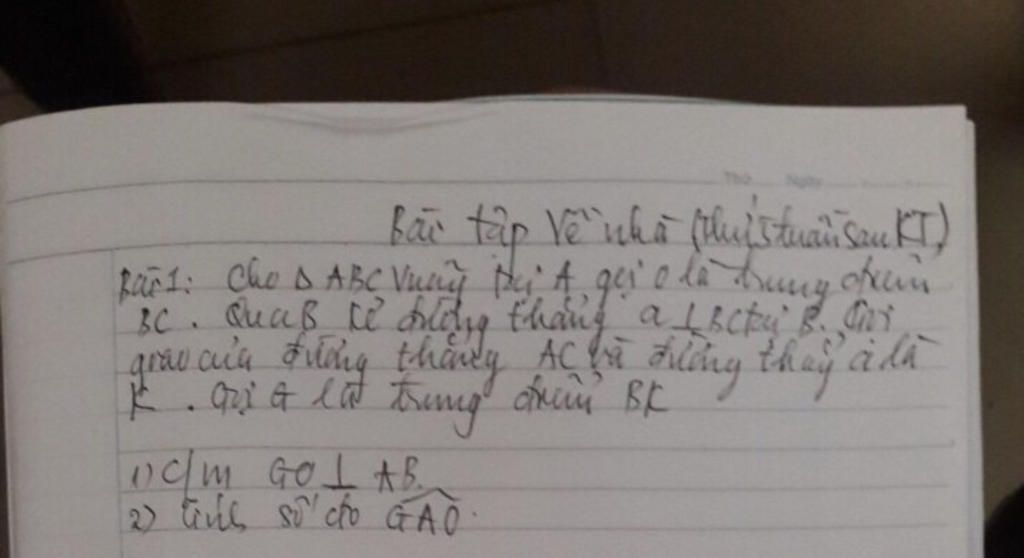 Thứ Ngày
Bài tập Về nhà (thứ 5 tuần sau KT)
Bài 1: Cho Δ ABC vuông tại A gọi O là trung điểm
BC. Qua B kẻ đường thẳng a ⊥ BC tại B. Gọi
giao của đường thẳng AC và đường thẳng a là
K. Gọi G là trung điểm BK
1) C/m GO ⊥ AB.
2) Tính số đo \widehat{GAO}.